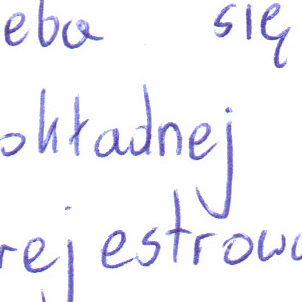 eba się
okładnej
rejestrowa